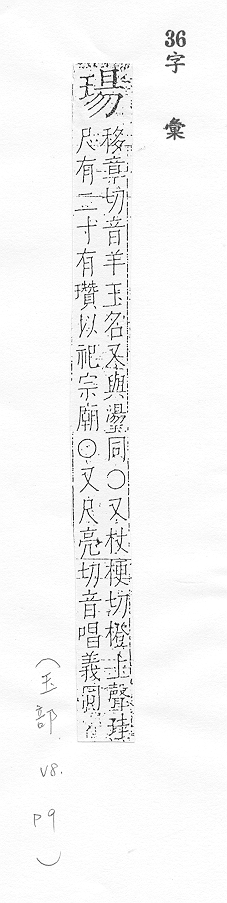 36
字彙
瑒
移章切音羊玉名又與璗同○又杖梗切橙上聲珪
尺有二寸有瓚以祀宗廟○又尺亮切音唱義同
(玉部. V8. P9)